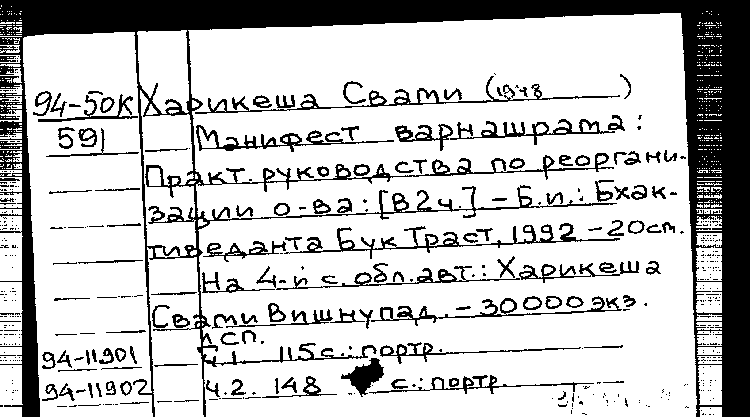 94-50К Харикеша Свами (1948 )
591 Манифест варнашрама:
Практ. руководства по реоргани-
зации о-ва: [В 2ч.] – Б.и.: Бхак-
тиведанта Бук Траст, 1992 – 20см.
На 4-й с. обл. авт.: Харикеша
Свами Вишнупад. – 30000 экз.
1 сп.
94-11901 Ч.1. 115 с.: портр.
94-11902 Ч.2. 148 с.: портр.